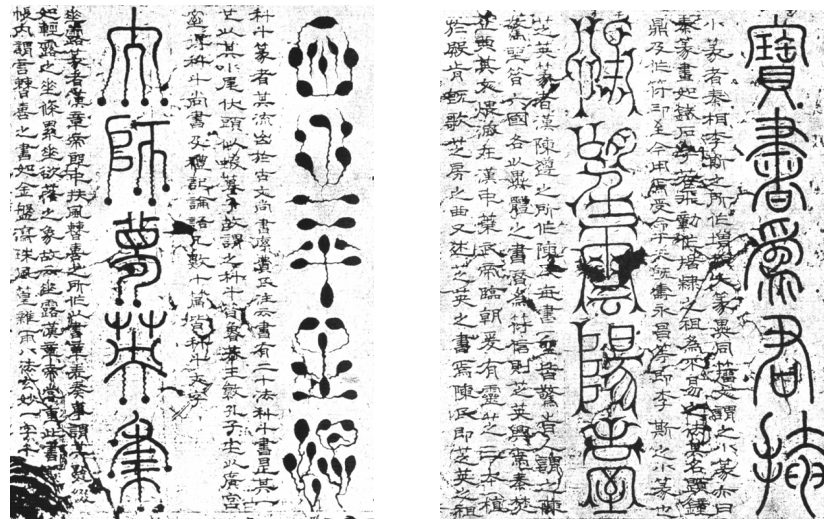 寶書為君掃
小篆者秦相李斯之所作增損大篆異同籀文謂之小篆亦曰
秦篆畫如鐵石字若飛動作楷隸之祖為不易之法其名題鐘
鼎及作符印至今用焉受命于天既壽永昌等即李斯之小篆也
望雲陽臺
芝英篆者漢陳遵之所作陳氏每書一座皆驚時人謂之陳
驚座昔六國各以異體之書潛為符信則芝英興焉秦焚
古典其文煨滅在漢中葉武帝臨朝爰有靈芝三本植
於殿前既歌芝房之曲又述芝英之書焉陳氏即芝英之祖
科斗篆者其流出於古文尚書序費氏注云書有二十法科斗書是其一
也以其小尾伏頭似蝦蟇子故謂之科斗昔魯恭王壞孔子宅以廣宮
室得科斗尚書及禮記論語凡數十篇皆科斗文字
師夢英集
垂露篆者漢章帝郎中扶風曹喜之所作以書章奏事謂其點綴
如輕露之垂條纍垂欲落之象故云垂露漢章帝嘗重此書
帳內謂言曹喜之書如金盤瀉珠風篁雜雨八法玄妙一字千